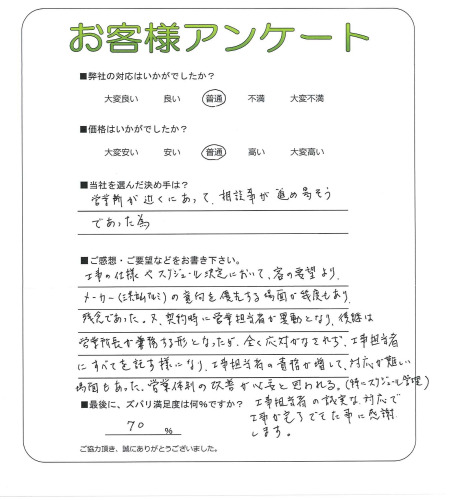 お客様アンケート
■弊社の対応はいかがでしたか?
大変良い 良い 普通 不満 大変不満
■価格はいかがでしたか?
大変安い 安い 普通 高い 大変高い
■当社を選んだ決め手は?
営業所が近くにあって、相談事が進め易そう
であった為
■ご感想・ご要望などをお書き下さい。
工事の仕様やスケジュール決定において、客の要望より、
メーカー(三協アルミ)の意向を優先する場面が幾度もあり
残念であった。又、契約時に営業担当者が異動となり、後継は
営業所長が兼務する形となったが、全く応対がなされず、工事担当者
にすべてを託す様になり、工事担当者の責務が増して、対応が難しい
場面もあった。営業体制の改善が必要と思われる。(特にスケジュール管理)
■最後に、ズバリ満足度は何%ですか?
70 %
工事担当者の誠実な対応で
工事が完了できた事に感謝
します。
ご協力頂き、誠にありがとうございました。